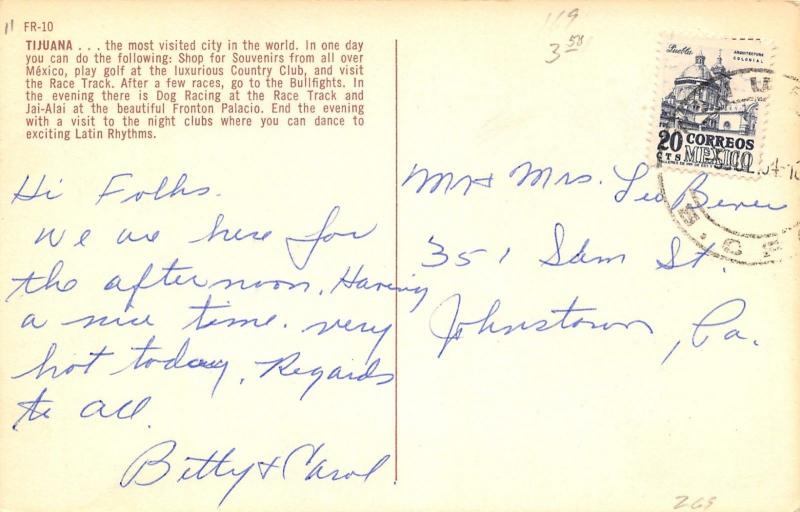 FR-10
TIJUANA . . . the most visited city in the world. In one day
you can do the following: Shop for Souvenirs from all over
México, play golf at the luxurious Country Club, and visit
the Race Track. After a few races, go to the Bullfights. In
the evening there is Dog Racing at the Race Track and
Jai-Alai at the beautiful Fronton Palacio. End the evening
with a visit to the night clubs where you can dance to
exciting Latin Rhythms.
Hi Folks.
We are here for
the afternoon. Having
a nice time. very
hot today. Regards
to all.
Betty & Carol.
119
3 50
Puebla
ARQUITECTURA
COLONIAL
20 CORREOS
CTS MEXICO
Mr & Mrs. Leo
351 Sam St.
Johnstown, Pa.
269